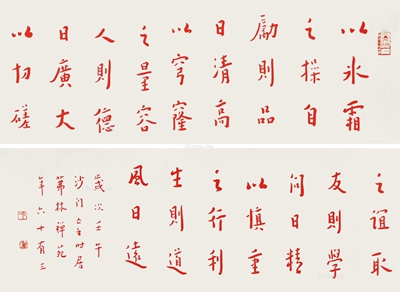 以氷霜
之操自
勵則品
日清高
以穹窿
之量容
人則德
日廣大
以切磋
之誼取
友則學
問日精
以慎重
之行利
生則道
風日遠
歲次壬午
沙門時居
林禪苑
年六十有三